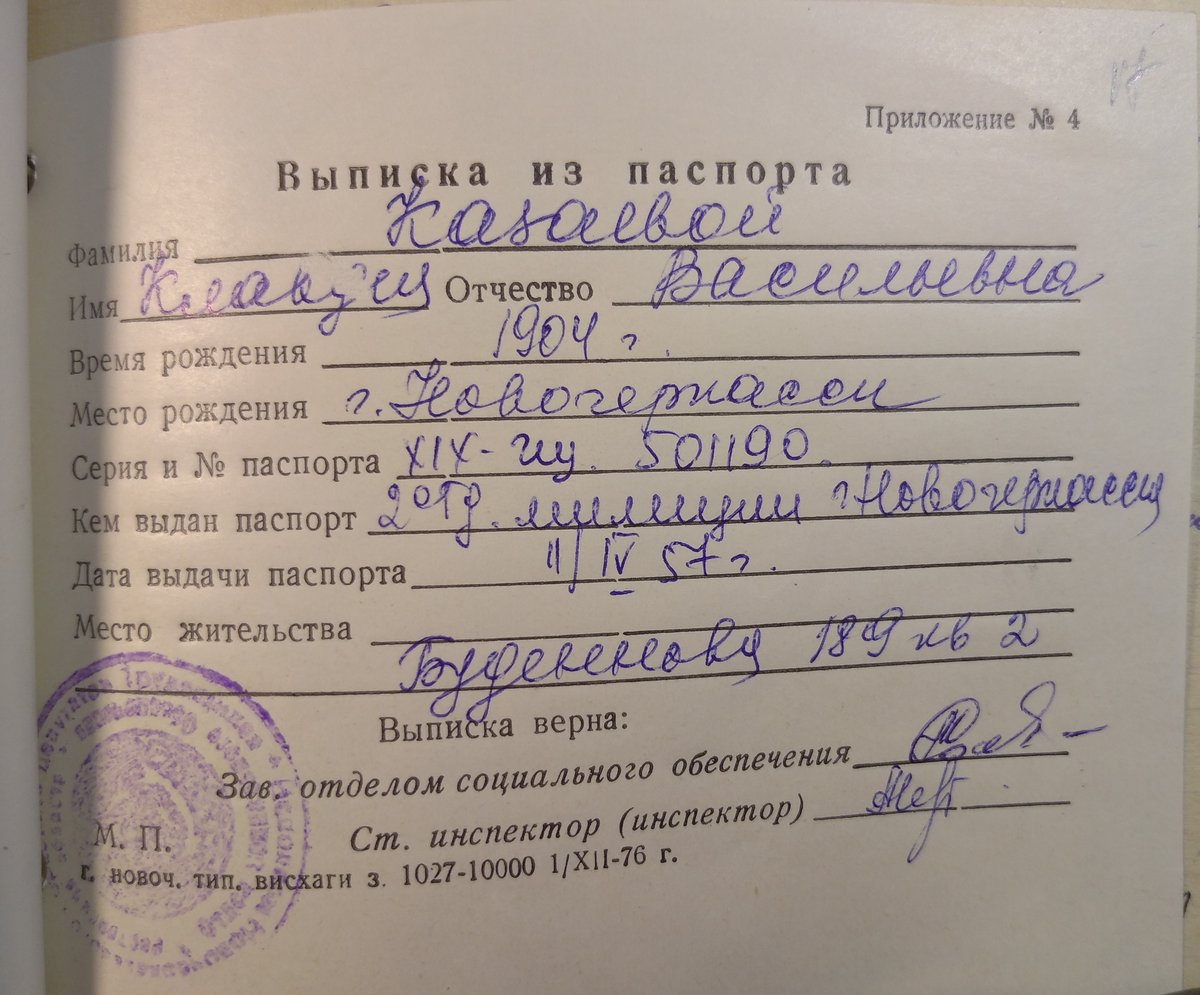 Приложение № 4
Выписка из паспорта
Фамилия Казаевой
Имя Клавдии Отчество Васильевна
Время рождения 1904 г.
Место рождения г. Новочеркасск
Серия и № паспорта XIX-ИЦ. 501190.
Кем выдан паспорт 2 отд. милиции г Новочеркасска
Дата выдачи паспорта 11/IV 57 г.
Место жительства
Буденнова 189 кв 2
Выписка верна:
Зав. отделом социального обеспечения
Ст. инспектор (инспектор)
М. П.
г. новоч. тип. висхаги з. 1027-10000 1/XII-76 г.